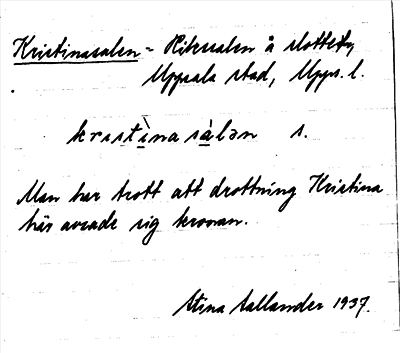 Kristinasalen - Rikssalen å slottet,
Uppsala stad, Upps. l.
kristìnasàlən s.
Man har trott att drottning Kristina
här avsade sig kronan.
Stina Sallander 1937.